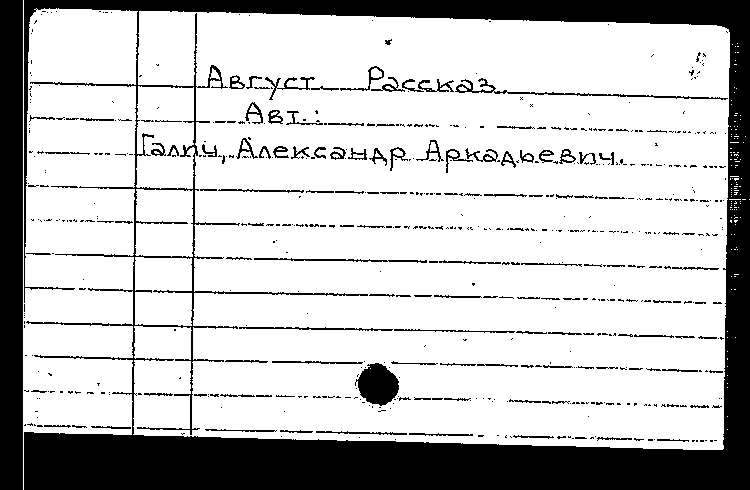 Август. Рассказ.
Авт.:
Галич, Александр Аркадьевич.